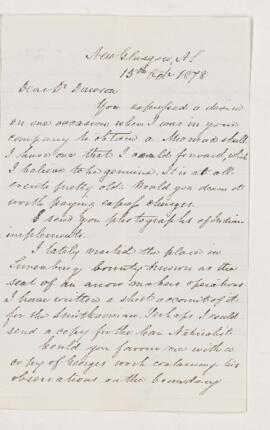 New Glasgow, N.S.
15th Feb 1878
Dear Dr Dawson
You expressed a desire
on one occasion when I was in your
company to obtain a Micmac skull
I have one that I could forward, which
I believe to be genuine. It is at all
events pretty old. Would you deem it
worth paying express charges.
I send you photographs of Indian
implements.
I lately visited the place in
Lunenburg County known as the
seat of an arrow makers operations
I have written a short account of it
for the Smithsonian. Perhaps I could
send a copy for the Can Naturalist.
Could you favour me with a
copy of Georges work containing his
observations on the boundary